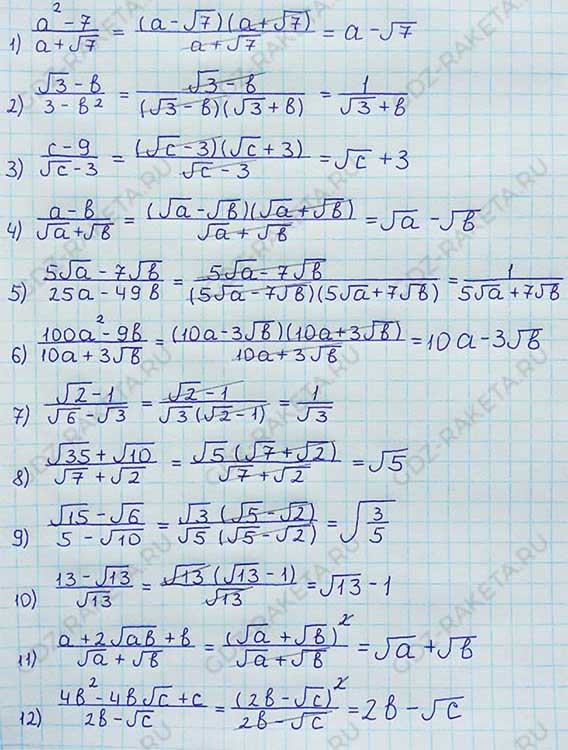 1) (a² - 7)/(a + √7) = ((a - √7)(a + √7))/(a + √7) = a - √7
2) (√3 - в)/(3 - в²) = (√3 - в)/((√3 - в)(√3 + в)) = 1/(√3 + в)
3) (c - 9)/(√c - 3) = ((√c - 3)(√c + 3))/(√c - 3) = √c + 3
4) (a - в)/(√a + √в) = ((√a - √в)(√a + √в))/(√a + √в) = √a - √в
5) (5√a - 7√в)/(25a - 49в) = (5√a - 7√в)/((5√a - 7√в)(5√a + 7√в)) = 1/(5√a + 7√в)
6) (100a² - 9в)/(10a + 3√в) = ((10a - 3√в)(10a + 3√в))/(10a + 3√в) = 10a - 3√в
7) (√2 - 1)/(√6 - √3) = (√2 - 1)/(√3(√2 - 1)) = 1/√3
8) (√35 + √10)/(√7 + √2) = (√5(√7 + √2))/(√7 + √2) = √5
9) (√15 - √6)/(5 - √10) = (√3(√5 - √2))/(√5(√5 - √2)) = √(3/5)
10) (13 - √13)/√13 = (√13(√13 - 1))/√13 = √13 - 1
11) (a + 2√aв + в)/(√a + √в) = (√a + √в)²/(√a + √в) = √a + √в
12) (4в² - 4в√c + c)/(2в - √c) = (2в - √c)²/(2в - √c) = 2в - √c
GDZ-RAKETA.RU